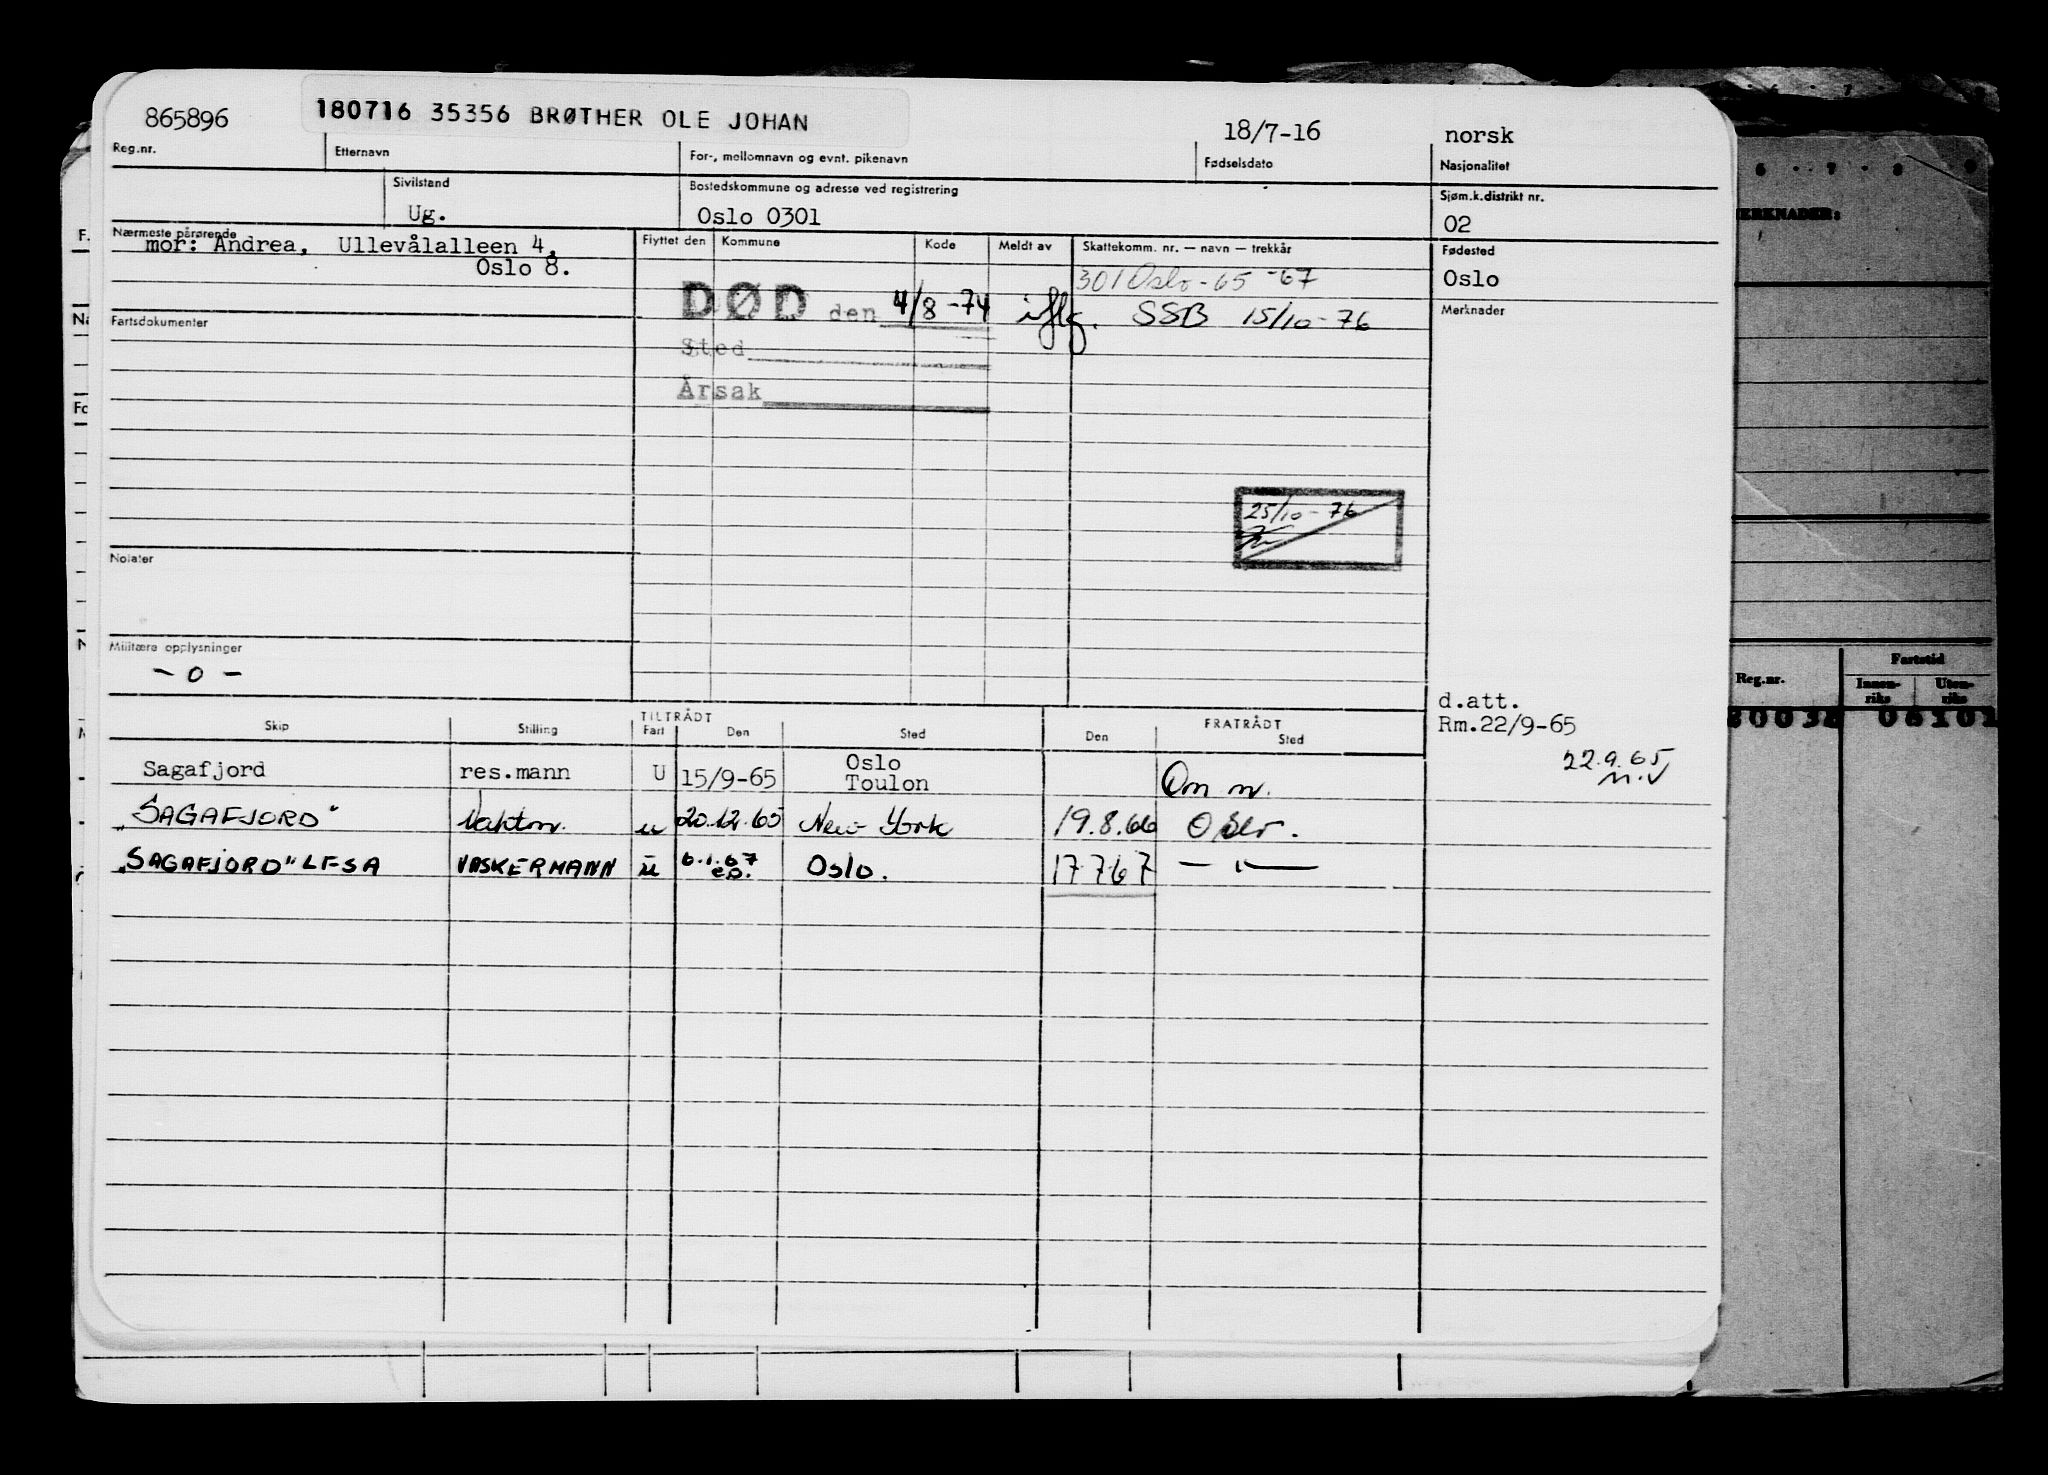 865896 180716 35356 BRØTHER OLE JOHAN 18/7-16 norsk
Reg.nr. Etternavn For-, mellomnavn og evnt. pikenavn Fødselsdato Nasjonalitet
Sivilstand Bostedskommune og adresse ved registrering Sjøm.k.distrikt nr.
Ug. Oslo 0301 02
Nærmeste pårørende Flyttet den Kommune Kode Meldt av Skattekomm. nr. — navn — trekkår Fødested
mor: Andrea, Ullevålalleen 4,
Oslo 8. 301 Oslo - 65 -67 Oslo
DØD den 4/8-74 iflg. SSB 15/10-76 Merknader
Fartsdokumenter
Sted
Årsak
25/10-76
Notater
Militære opplysninger
- 0 -
d.att.
Rm.22/9-65
22.9.65
Skip Stilling TILTRÅDT Fart Den Sted FRATRÅDT Den Sted
Sagafjord res.mann U 15/9-65 Oslo
Toulon Om m.
"SAGAFJORD" Vaktm. u 20.12.65 New York 19.8.66 Oslo.
"SAGAFJORD" LFSA VASKERMANN u 6.1.67 Oslo. 17 7 67 — " —
e.o.
F.
Fo
N
6 7 8 9
MERKNADER:
Reg.nr. Fartstid
Innen-
riks Uten-
riks
80038 06101